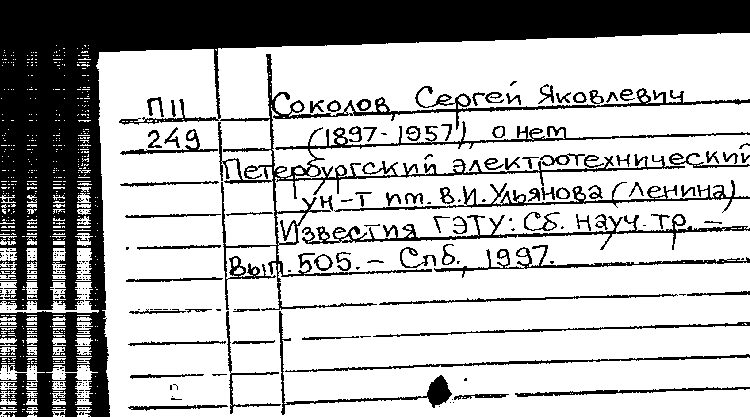 П11
249
Соколов, Сергей Яковлевич
(1897-1957), о нем
Петербургский электротехнический
ун-т им. В.И. Ульянова (Ленина)
Известия ГЭТУ: Сб. науч. тр. –
Вып. 505. – Спб., 1997.